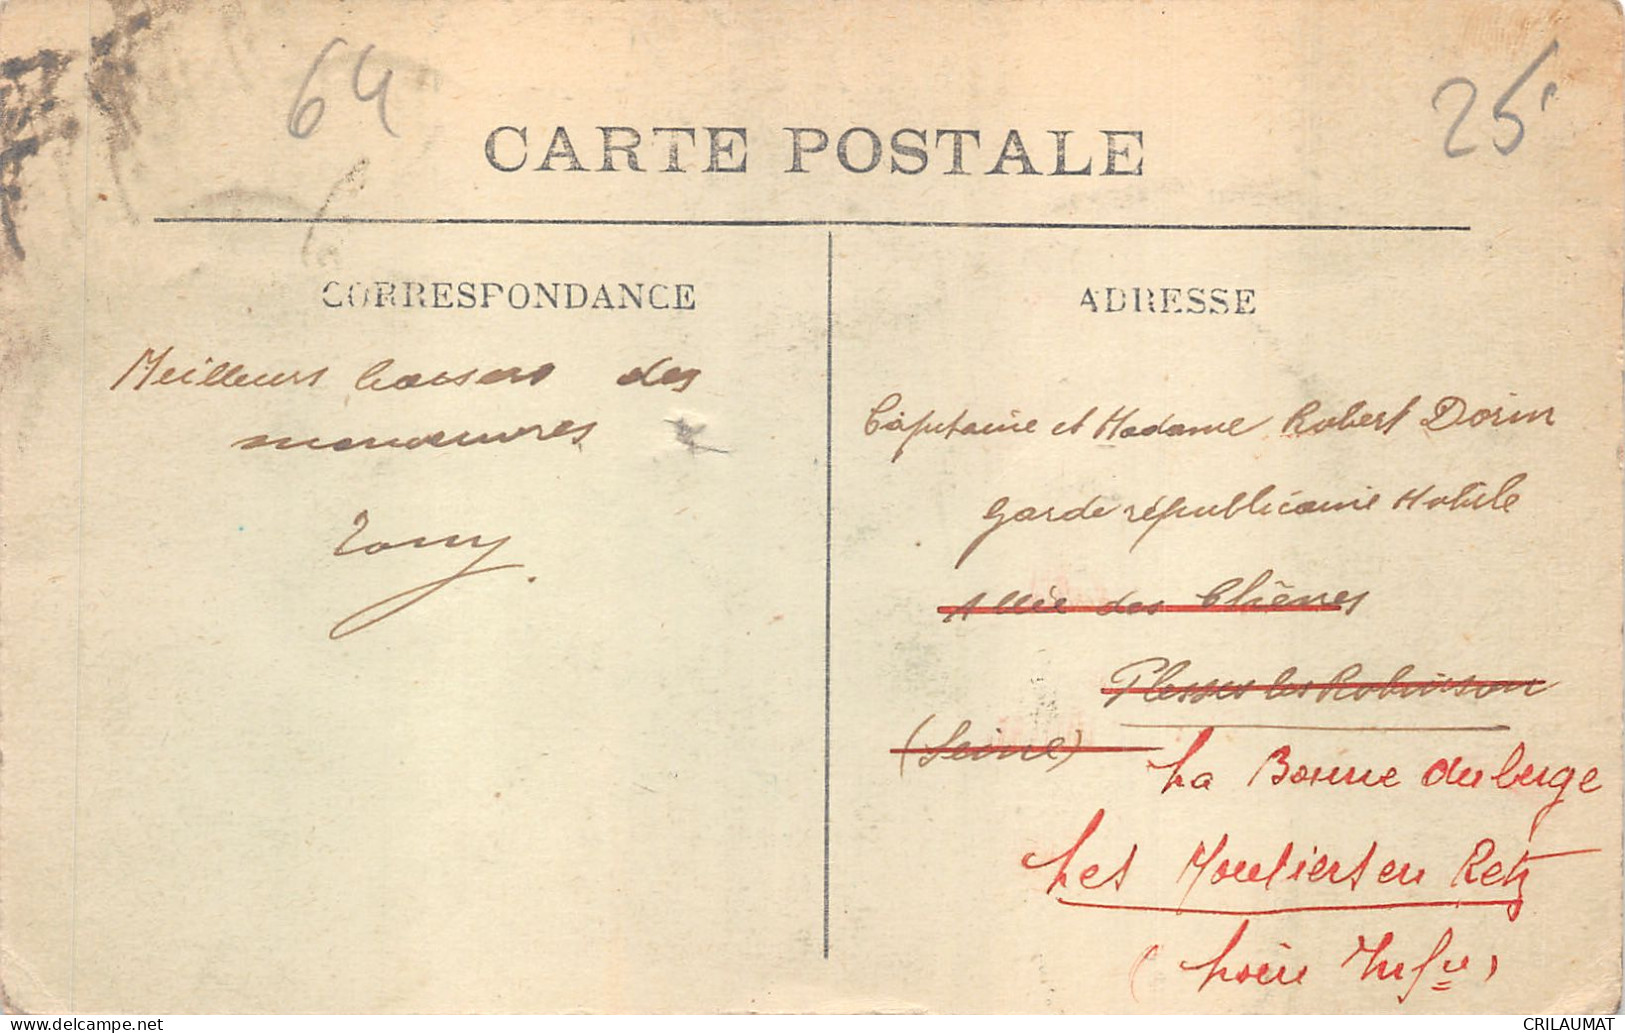 64
25
CARTE POSTALE
CORRESPONDANCE
Meilleurs baisers des
manoeuvres
Tony
ADRESSE
Capitaine et Madame Robert Dorin
Garde républicaine Mobile
Allée des Chênes
Plessis les Robinson
(Seine)
La Bonne Auberge
Les Moutiers en Retz
(Loire Infre)
CRILAUMAT